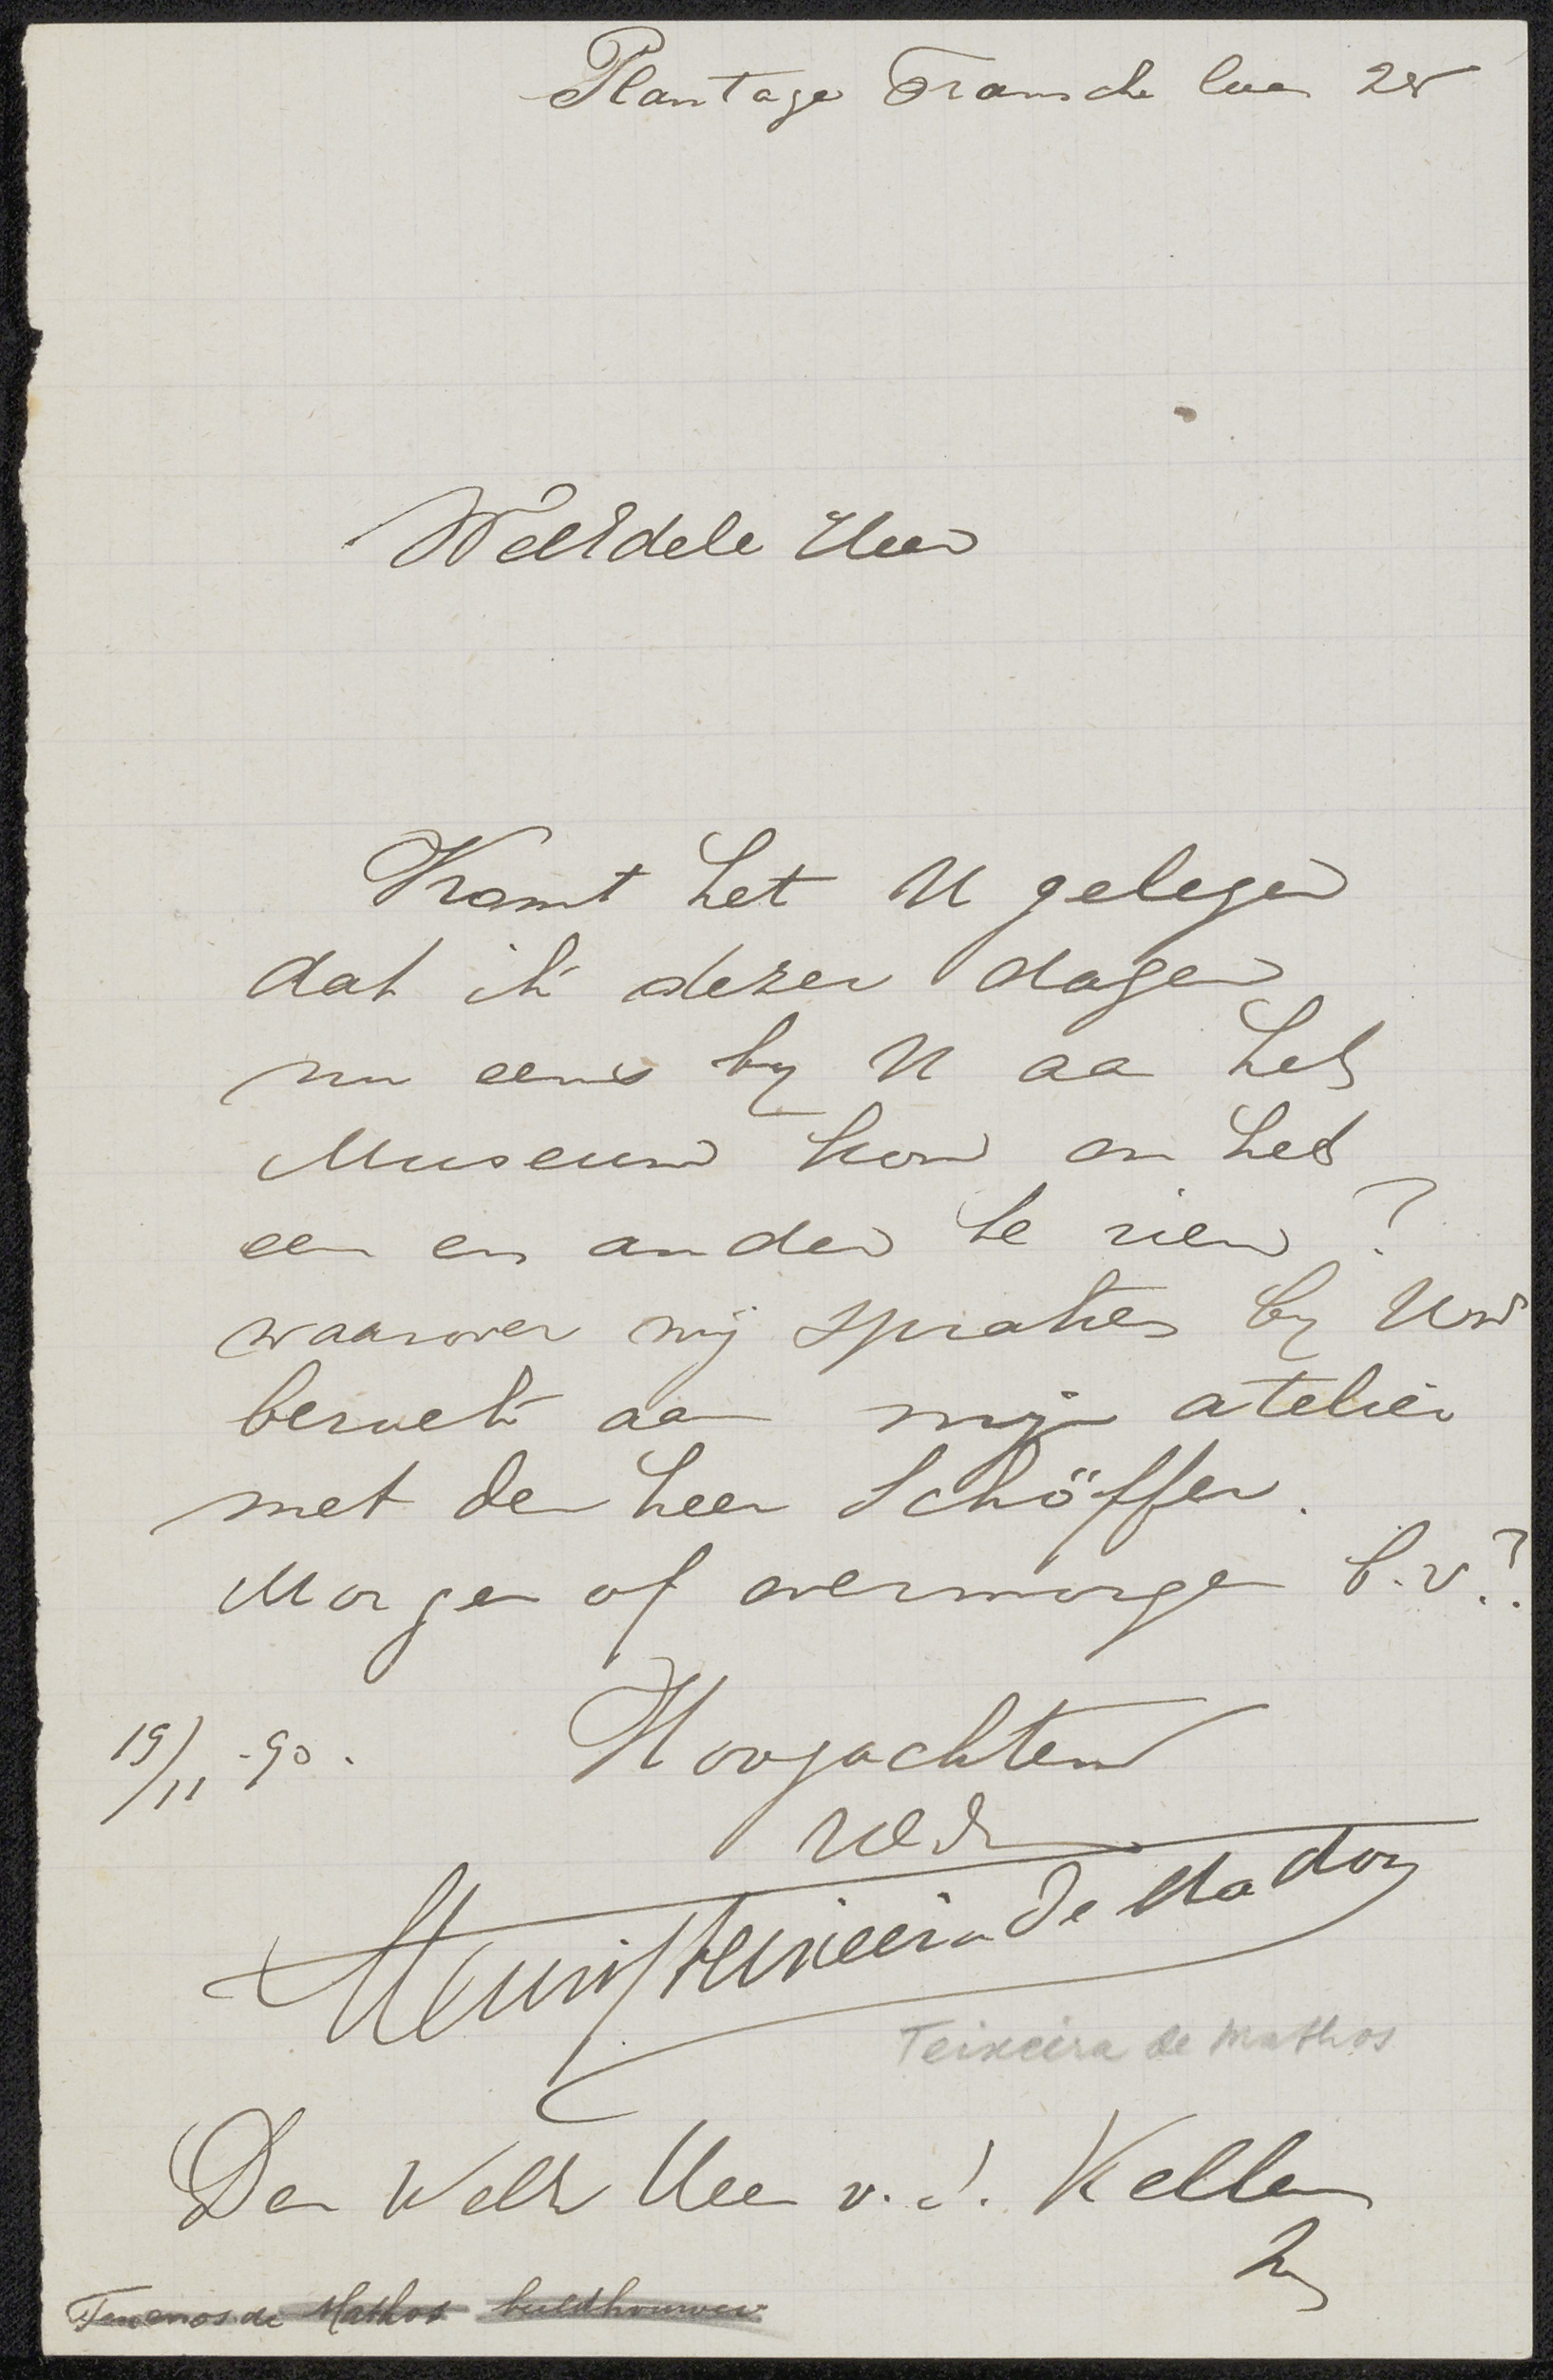 Plantage Fransche laan 28
WelEdele Heer
Komt het U gelegen
dat ik dezer dagen
nu eens by U aan het
Museum kom om het
een en ander te zien?
waarover wij spraken by Uw
bezoek aan mijn atelier
met den heer Schöffer.
Morgen of overmorgen b.v.?
19/11 -90.
Hoogachtend
UEd
Henri Teixeira de Mattos
Teixeira de Mathos
Den WelE Heer v. d. Kellen
de Mathos beeldhouwer